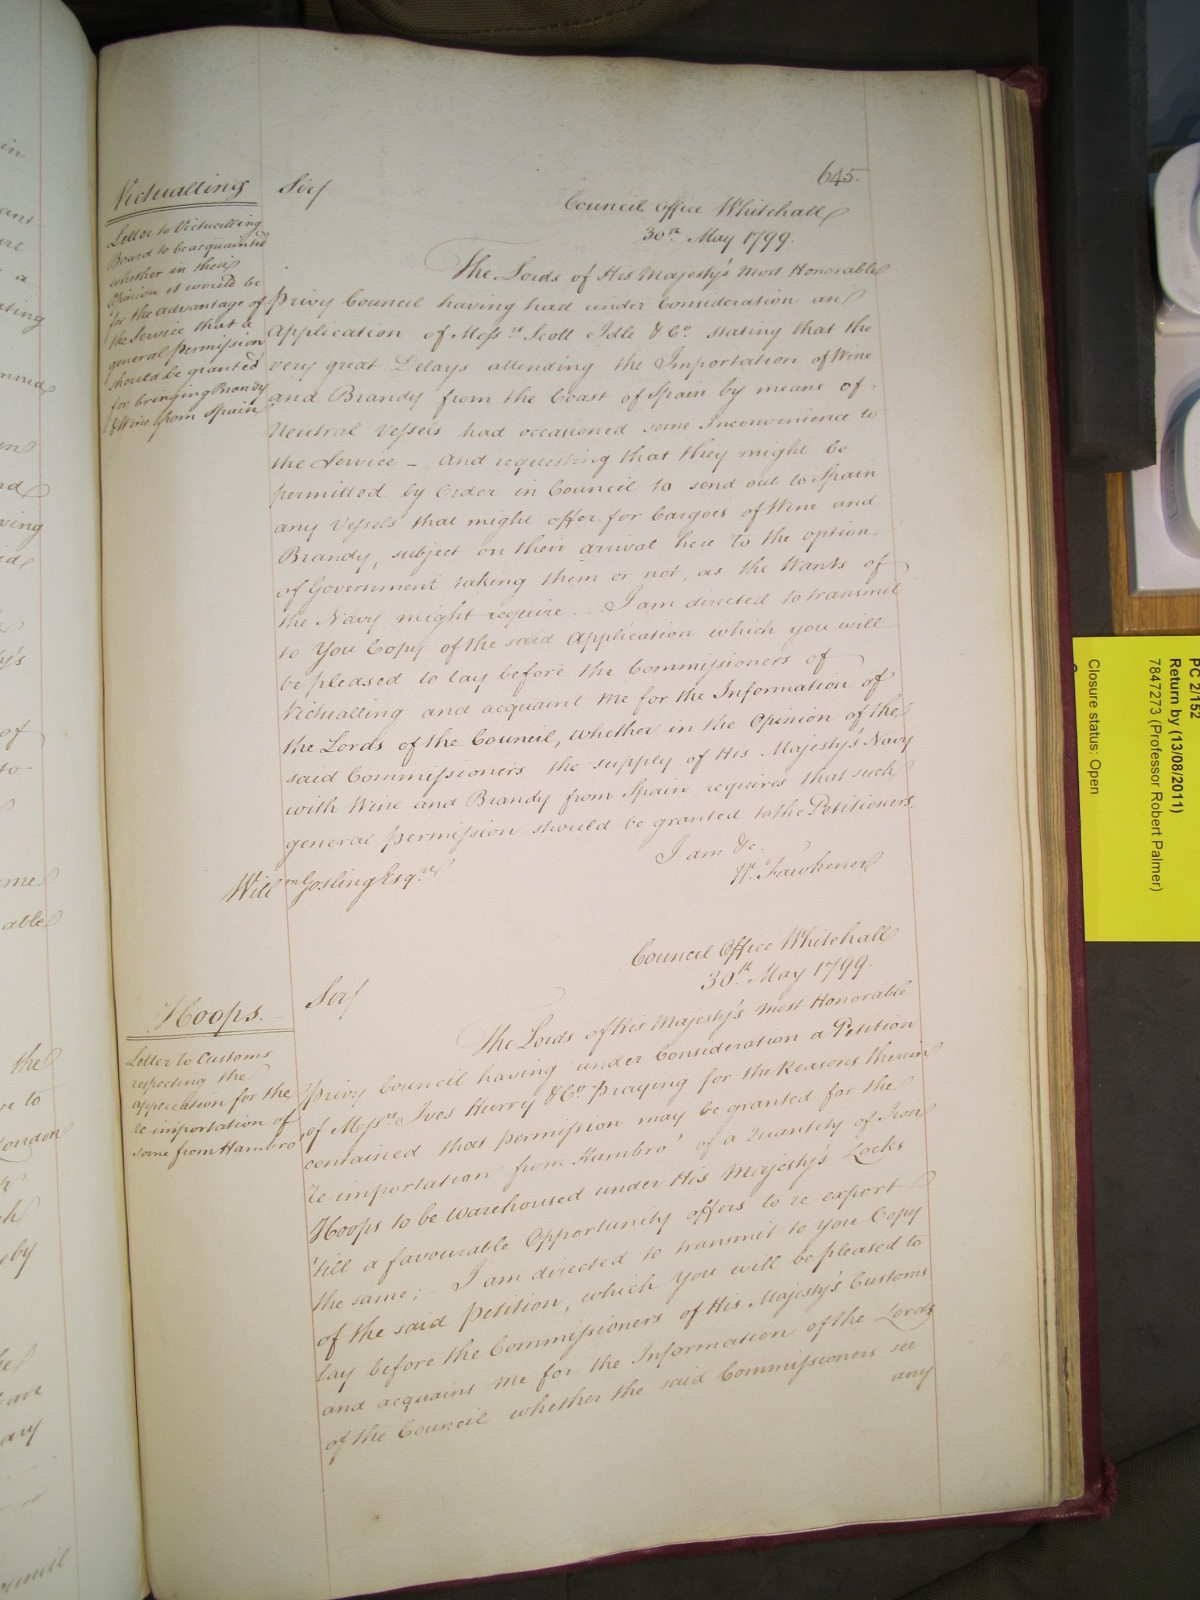 645.
Victualling
Letter to Victualling
Board to be acquainted
whether in their
Opinion it would be
for the advantage of
the Service that a
general permission
should be granted
for bringing Brandy
& Wine from Spain
Sir/
Council Office Whitehall
30th May 1799.
The Lords of His Majesty's most Honorable
Privy Council having had under Consideration an
Application of Messrs Scott Idle & Co. stating that the
very great Delays attending the Importation of Wine
and Brandy from the Coast of Spain by means of
Neutral Vessels had occasioned some Inconvenience to
the Service – and requesting that they might be
permitted by Order in Council to send out to Spain
any Vessels that might offer for Cargoes of Wine and
Brandy, subject on their arrival here to the option
of Government taking them or not, as the Wants of
the Navy might require – I am directed to transmit
to You Copy of the said Application which you will
be pleased to lay before the Commissioners of
Victualling and acquaint me for the Information of
the Lords of the Council, whether in the Opinion of the
said Commissioners the supply of His Majesty's Navy
with Wine and Brandy from Spain requires that such
general permission should be granted to the Petitioners.
I am &c.
W. Fawkener
Willm Gosling Esqre
Hoops.
Letter to Customs
respecting the
application for the
re importation of
some from Hambro'
Council Office Whitehall
30th May 1799.
Sir/
The Lords of His Majesty's most Honorable
Privy Council having under Consideration a Petition
of Messrs Ives Hurry & Co. praying for the Reasons therein
contained that permission may be granted for the
re importation from Hambro' of a Quantity of Iron
Hoops to be warehoused under His Majesty's Locks
'till a favourable Opportunity offers to re export
the same; – I am directed to transmit to You Copy
of the said Petition, which You will be pleased to
lay before the Commissioners of His Majesty's Customs
and acquaint me for the Information of the Lords
of the Council whether the said Commissioners see
any
PC 2/152
Return by (13/08/2011)
7847273 (Professor Robert Palmer)
Closure status: Open